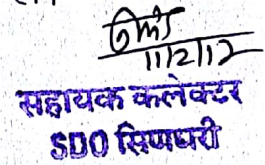 11/2/12
सहायक कलेक्टर
SDO सिणधरी